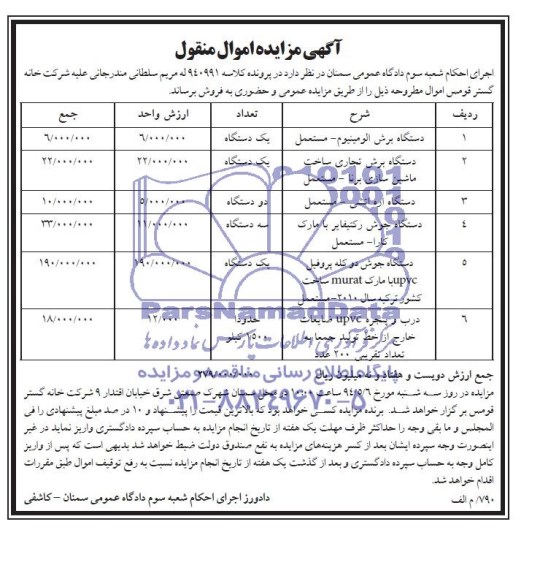 آگهی مزایده اموال منقول
اجرای احکام شعبه سوم دادگاه عمومی سمنان در نظر دارد در پرونده کلاسه ۹۴۰۹۹۱ له مریم سلطانی مندرجانی علیه شرکت خانه
گستر قومس اموال مطروحه ذیل را از طریق مزایده عمومی و حضوری به فروش برساند.
ردیف شرح تعداد ارزش واحد جمع
۱ دستگاه برش الومینیوم- مستعمل یک دستگاه ۶/۰۰۰/۰۰۰ ۶/۰۰۰/۰۰۰
۲ دستگاه برش تجاری ساخت یک دستگاه ۲۲/۰۰۰/۰۰۰ ۲۲/۰۰۰/۰۰۰
ماشین سازی برنا - مستعمل
۳ دستگاه اره آتشی - مستعمل دو دستگاه ۵/۰۰۰/۰۰۰ ۱۰/۰۰۰/۰۰۰
۴ دستگاه جوش رکتیفایر با مارک سه دستگاه ۱۱/۰۰۰/۰۰۰ ۳۳/۰۰۰/۰۰۰
کارا- مستعمل
۵ دستگاه جوش دو کله پروفیل یک دستگاه ۱۹۰/۰۰۰/۰۰۰ ۱۹۰/۰۰۰/۰۰۰
upvcبا مارک murat ساخت
کشور ترکیه سال ۲۰۱۰-مستعمل
۶ درب و پنجره upvc ضایعات حدودا ۱۲/۰۰۰ ۱۸/۰۰۰/۰۰۰
خارج از خط تولید جمعا به ۱۵۰۰ کیلو
تعداد تقریبی ۲۰۰ عدد
ParsNamadData
گروه فن آوری اطلاعات پارس نماد داده ها
پایگاه اطلاع رسانی مناقصه و مزایده
۰۲۱-۸۸۳۴۹۶۷۰-۵
جمع ارزش دویست و هفتاد و نه میلیون ریال
مزایده در روز سه شنبه مورخ ۹۴/۵/۶ ساعت در محل سمنان شهرک صنعتی شرق خیابان اقتدار ۹ شرکت خانه گستر
قومس بر گزار خواهد شد. برنده مزایده کسی خواهد بود که بالاترین قیمت را پیشنهاد و ۱۰ در صد مبلغ پیشنهادی را فی
المجلس و ما بقی وجه را حداکثر ظرف مهلت یک هفته از تاریخ انجام مزایده به حساب سپرده دادگستری واریز نماید در غیر
اینصورت وجه سپرده ایشان بعد از کسر هزینه‌های مزایده به نفع صندوق دولت ضبط خواهد شد بدیهی است که پس از واریز
کامل وجه به حساب سپرده دادگستری و بعد از گذشت یک هفته از تاریخ انجام مزایده نسبت به رفع توقیف اموال طبق مقررات
اقدام خواهد شد.
۷۹۰/ م الف
دادورز اجرای احکام شعبه سوم دادگاه عمومی سمنان - کاشفی